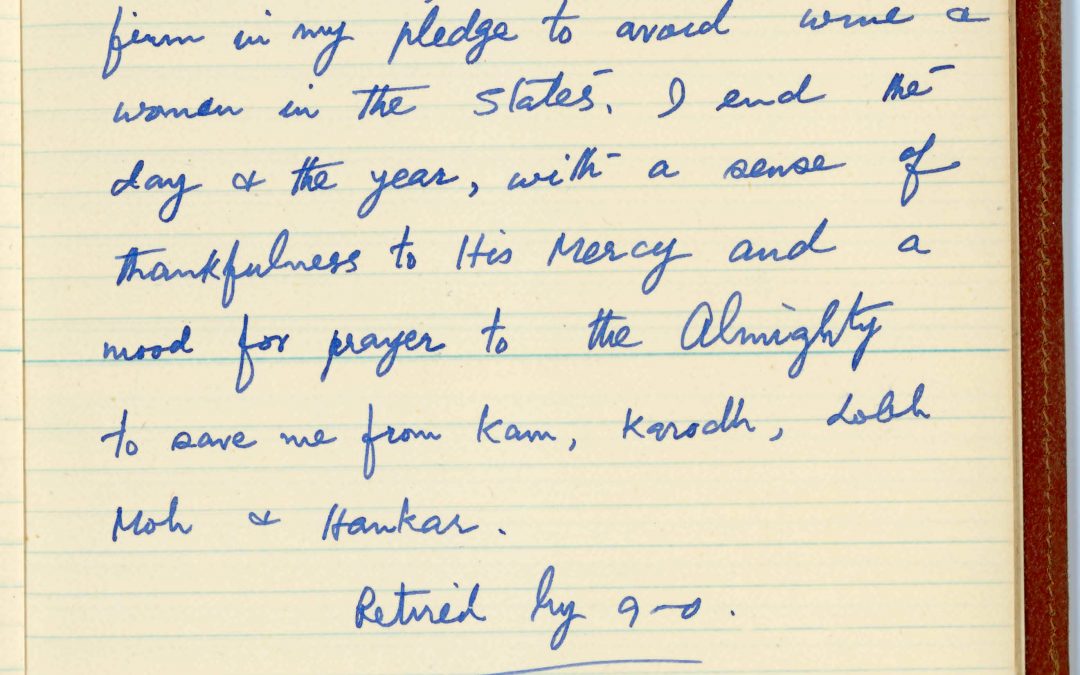 firm in my pledge to avoid wine &
women in the States. I end the
day & the year, with a sense of
thankfulness to His Mercy and a
mood for prayer to the Almighty
to save me from Kam, Karodh, Lobh
Moh & Hankar.
Retired by 9-0.